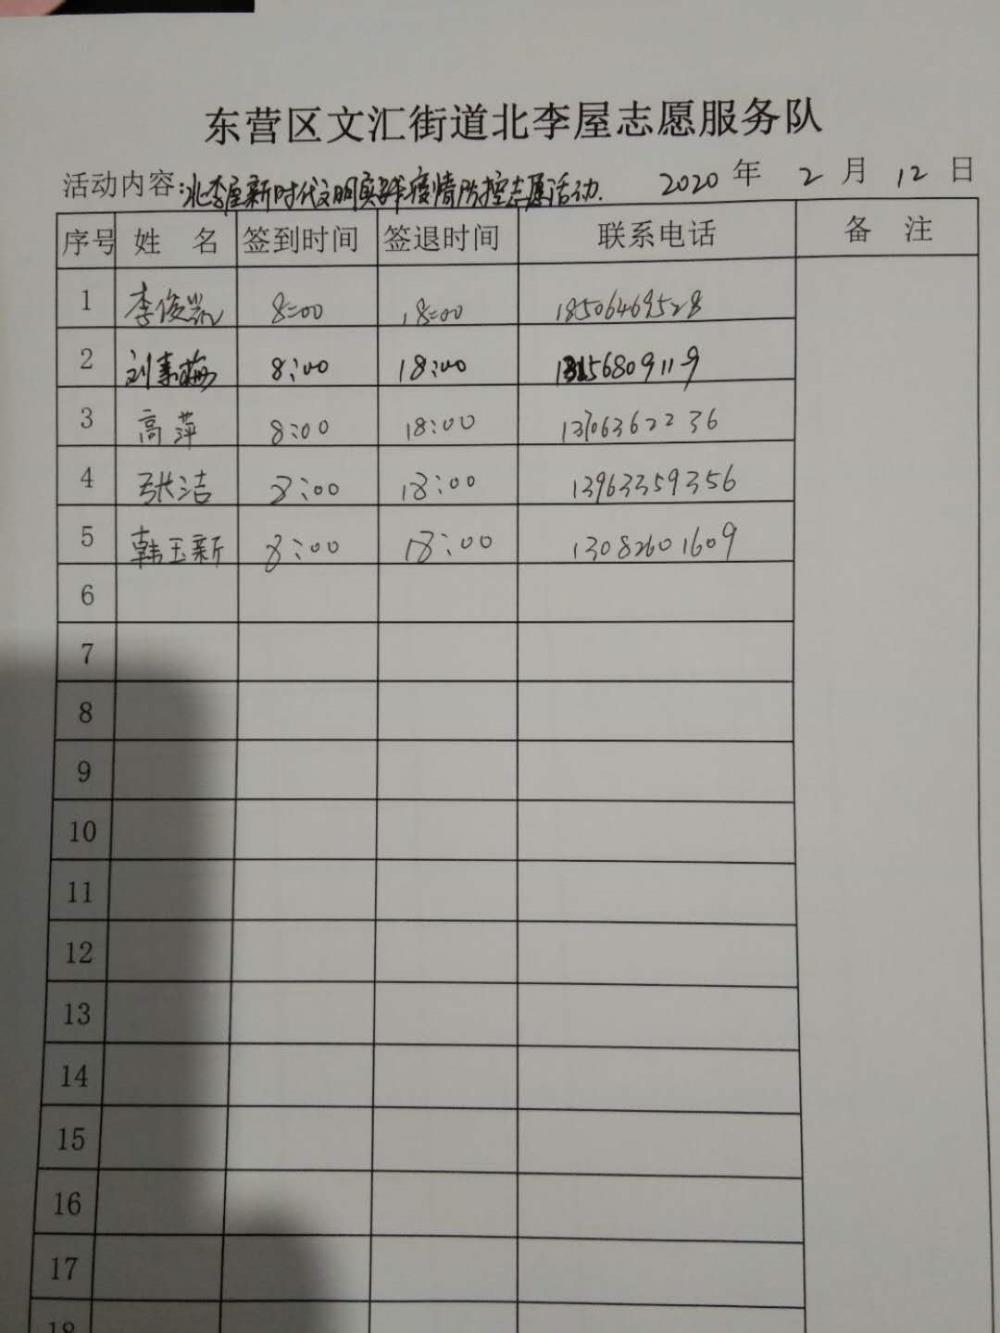 东营区文汇街道北李屋志愿服务队
活动内容:北李屋新时代文明实践疫情防控志愿活动. 2020 年 2 月 12 日
序号 姓 名 签到时间 签退时间 联系电话 备 注
1 李俊凯 8:00 18:00 18506469528
2 刘素梅 8:00 18:00
3 高萍 8:00 18:00 13706362236
4 张洁 8:00 18:00 13963359356
5 韩玉新 8:00 18:00 13082601609
6
7
8
9
10
11
12
13
14
15
16
17
18